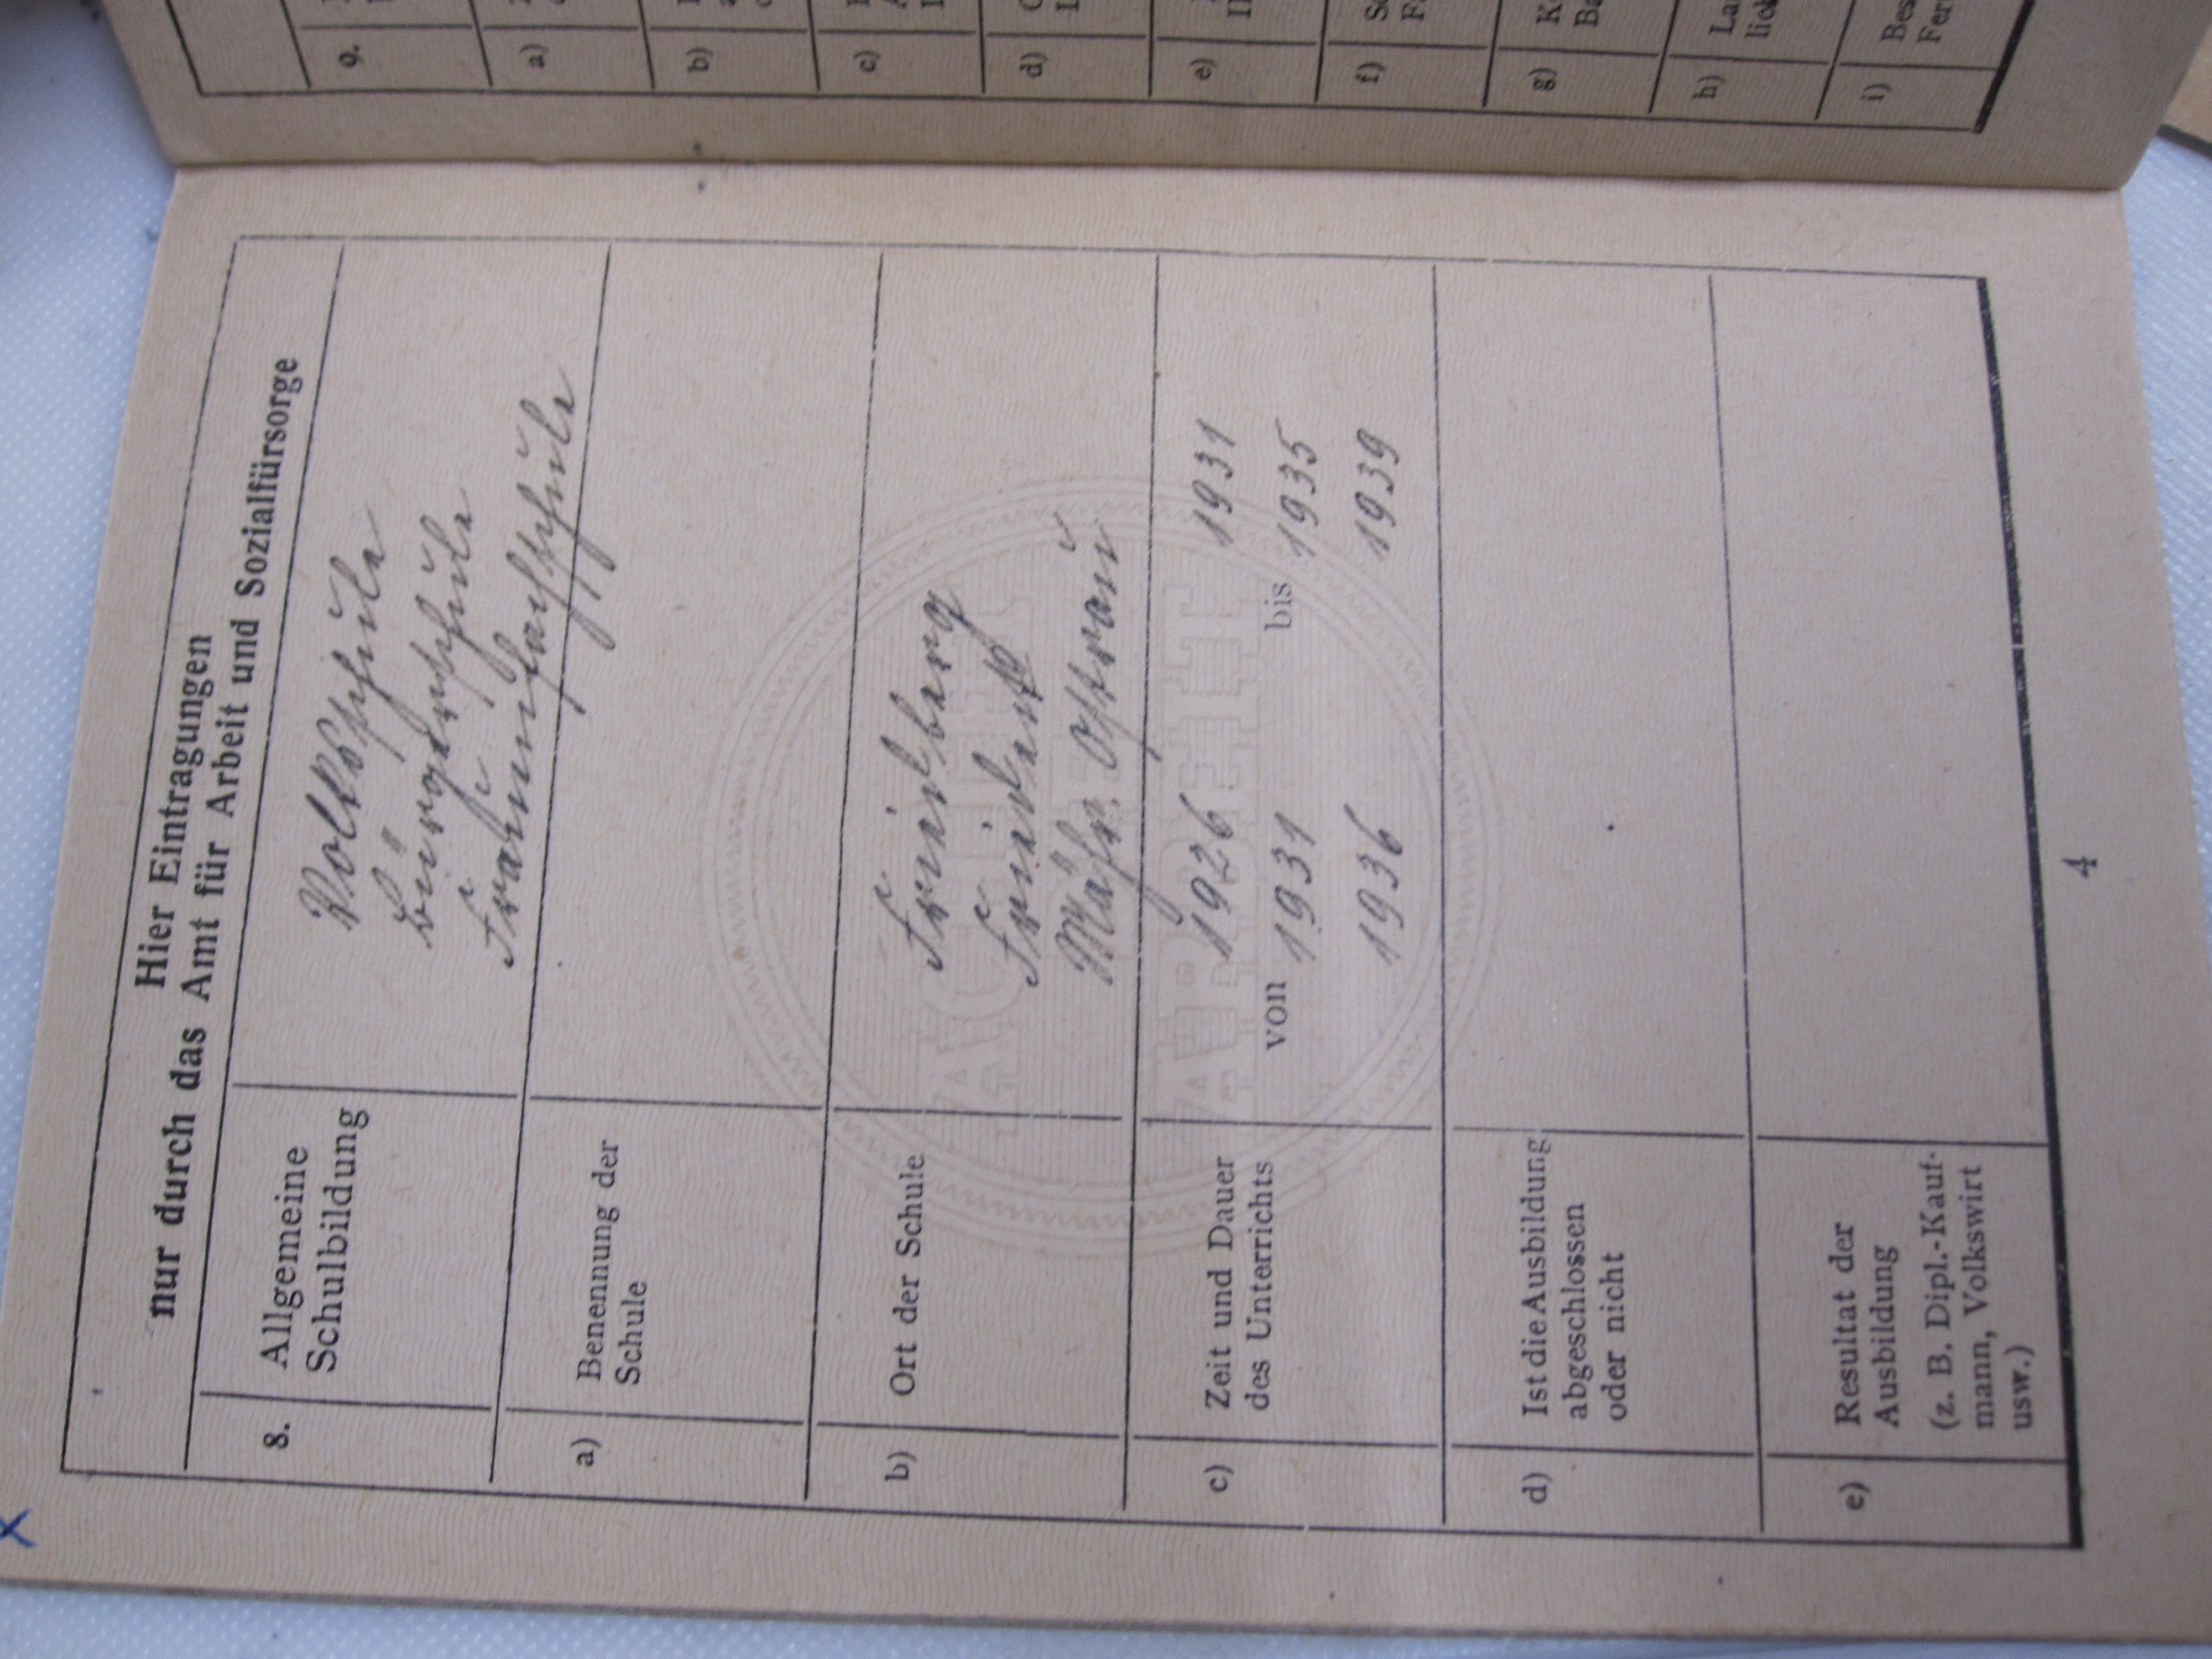 Hier Eintragungen
nur durch das Amt für Arbeit und Sozialfürsorge
8. Allgemeine
Schulbildung
Volksschule
Bürgerschule
Frauenfachschule
a) Benennung der
Schule
b) Ort der Schule
Friedberg
Mähr. Ostrau
c) Zeit und Dauer
des Unterrichts
von bis
1926 1931
1931 1935
1936 1939
d) Ist die Ausbildung
abgeschlossen
oder nicht
e) Resultat der
Ausbildung
(z. B. Dipl.-Kauf-
mann, Volkswirt
usw.)
4
9.
a)
b)
c)
d)
e)
f)
g)
h)
i)